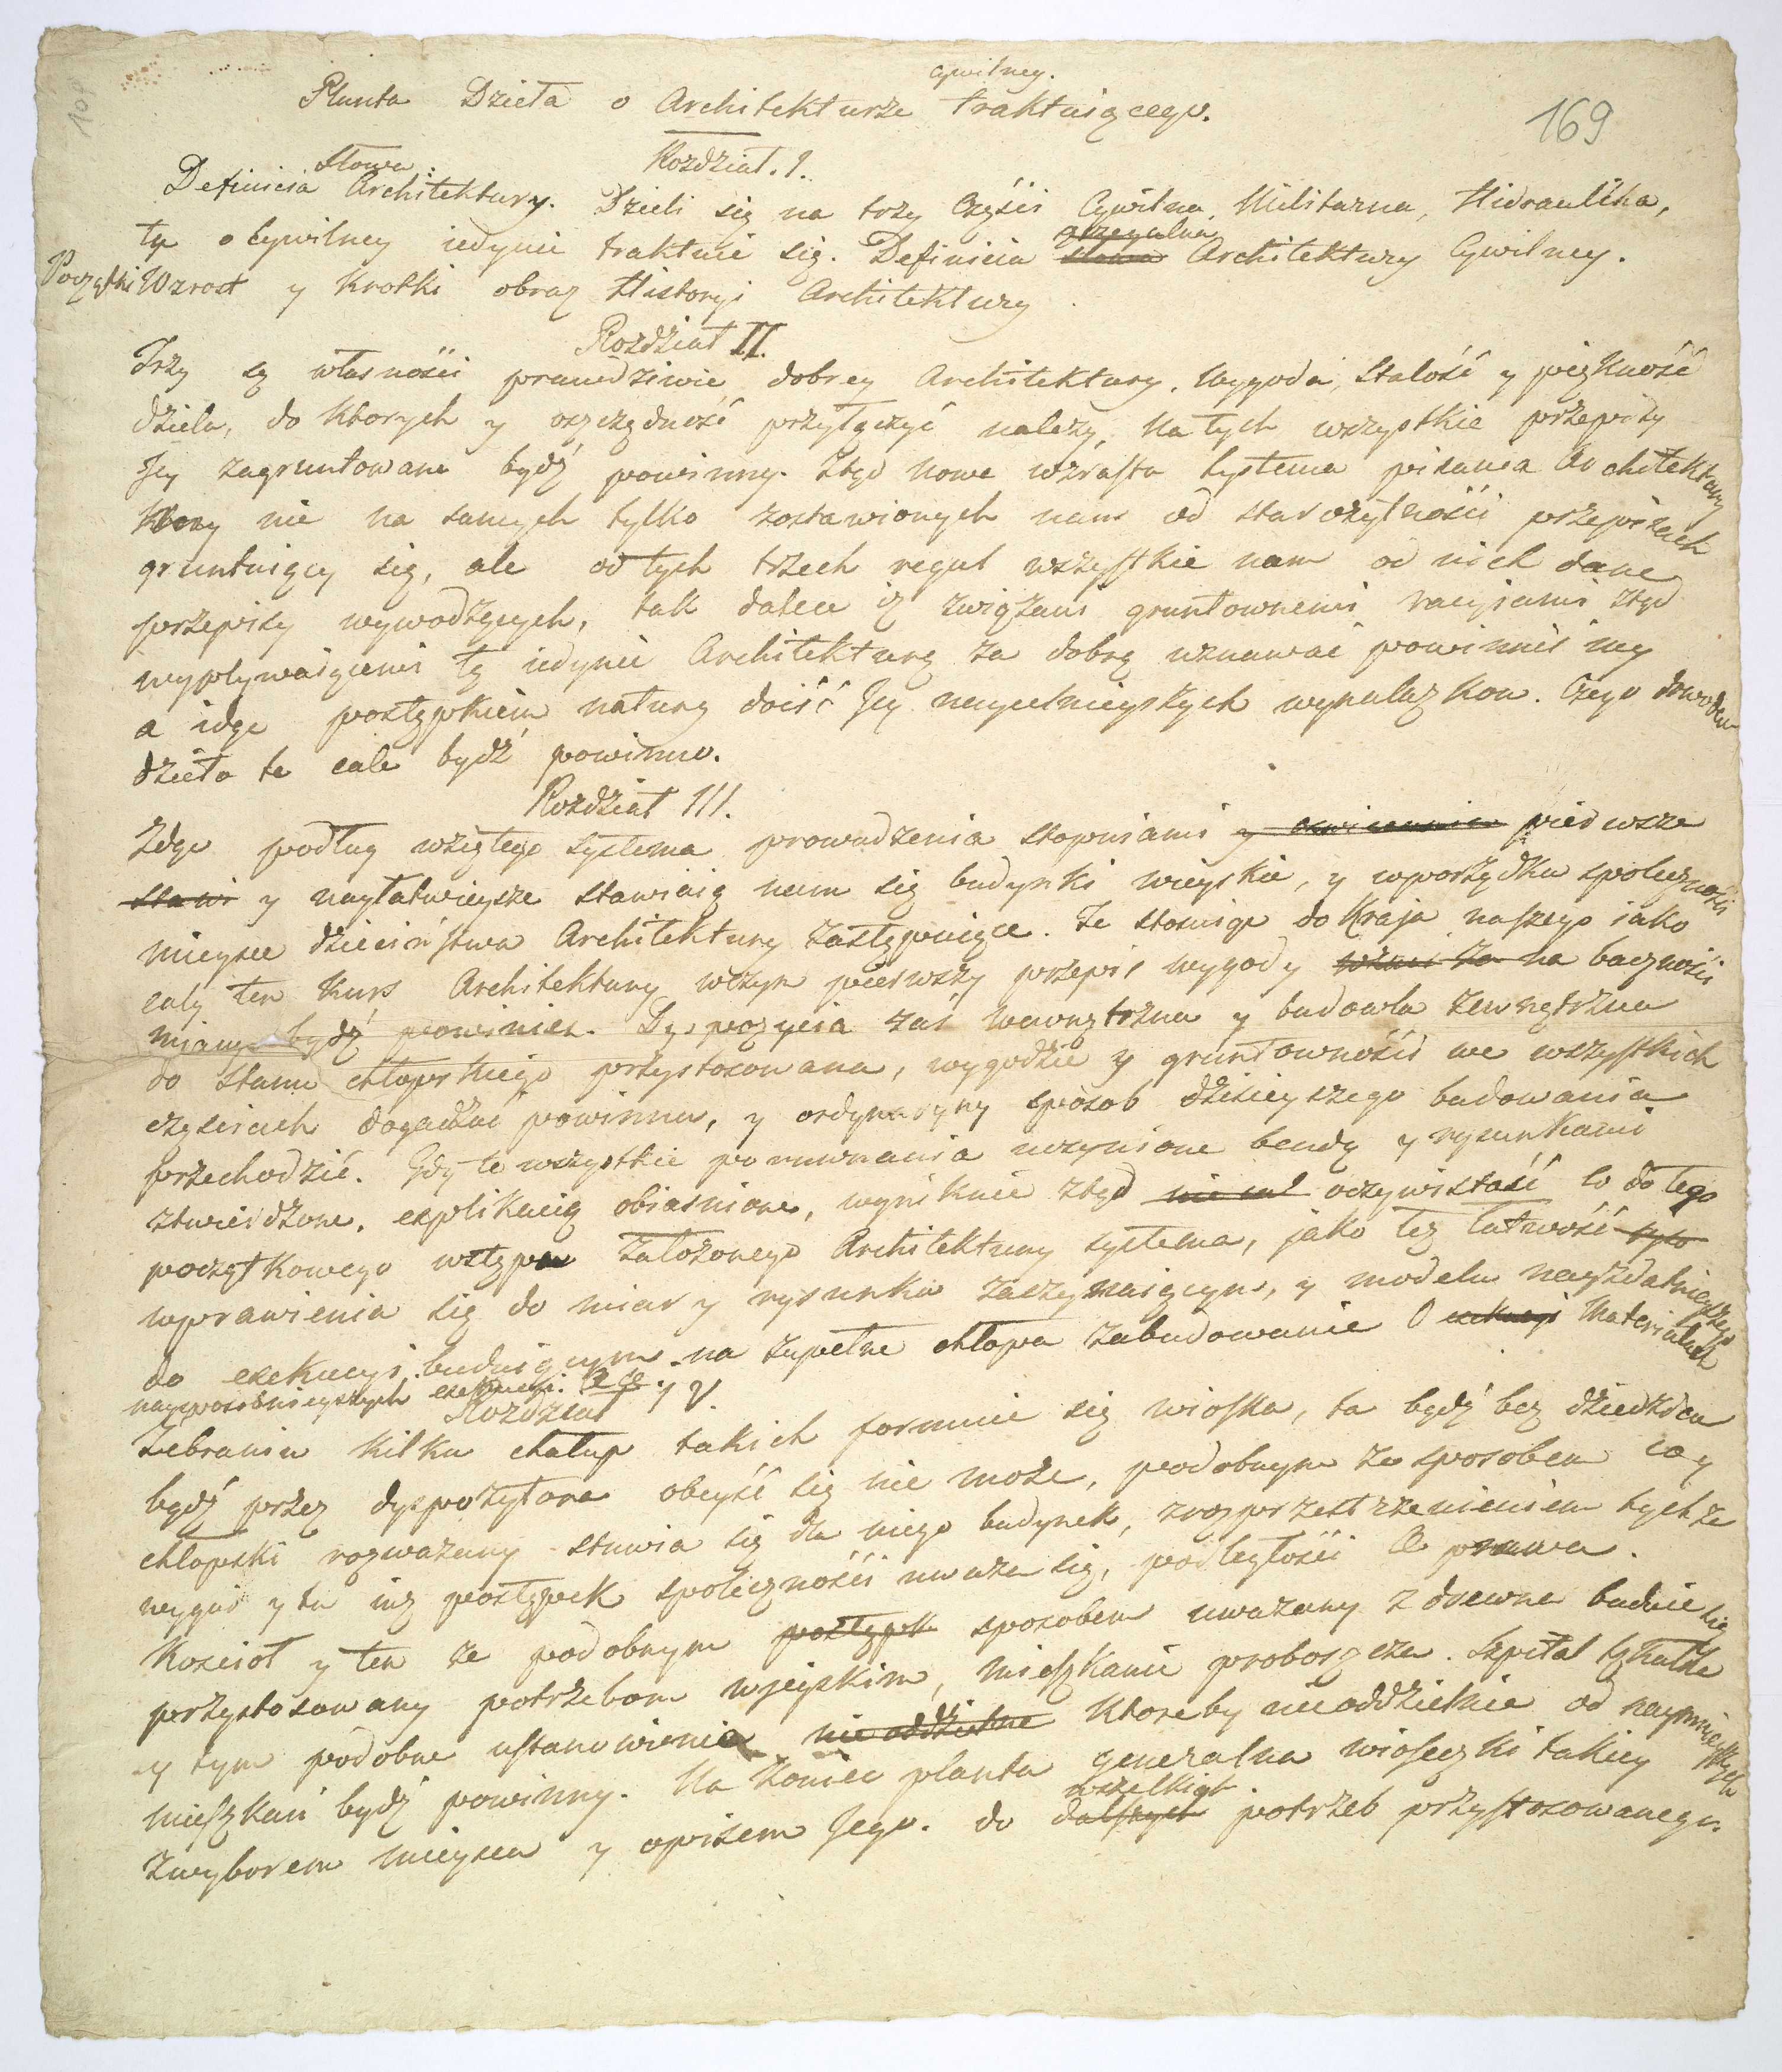 cywilney.
Planta Dzieła o Architekturze traktuiącego.
169
Rozdział. I.
słowa:
Definicia Architektury. Dzieli się na trzy Części Cywilna, Militarna, Hidraulika,
tu o Cywilney iedynie traktuie się. Definicia słowa Architektury Cywilney.
Początki Wzrost y krotki obraz Historyi Architektury
Rozdział II.
Trzy są własności prawdziwie dobrey Architektury. Wygoda, stałość y piękność
dzieła, do ktorych y oszczędność przyłączyć należy, Na tych wszystkie przepisy
Jey zagruntowane bydź powinny. Ztąd nowe wzrasta systema pisania Architektury
ktory nie na samych tylko zostawionych nam od starożytności przepisach
gruntuiący się, ale od tych trzech reguł wszystkie nam od nich dane
przepisy wywodzących, tak dalece iż związani gruntownemi racyiami ztąd
wypływaiącemi tę iedynie Architekturę za dobrą uznawać powinniśmy
a idąc postępkiem natury doiść Jey naycelnieyszych wynalazkow. Czego dowodem
dzieło te całe bydź powinno.
Rozdział III.
Idąc podług wziętego systema prowadzenia stopniami y pierwsze
stawi y nayłatwieysze stawiaią nam się budynki wieyskie, y w porządku społeczności
mieysce dzieciństwa Architektury zastępuiące. Te stosuiąc do Kraju naszego iako
cały ten kurs Architektury wczym pierwszy przepis wygody na baczności
miany bydź powinien. Dyspozycia zaś wewnętrzna y budowla zewnętrzna
do stanu chłopskiego przystosowana, wygodzie y gruntowności we wszystkich
częściach dogadzać powinna, y ordynaryiny sposob dzisieyszego budowania
przechodzić. Gdy te wszystkie porownania uczynione bendą y rysunkami
ztwierdzone, explikacią obiasnione, wyniknie ztąd oczywistość co do tego
początkowego wstępu założonego Architektury systema, jako też łatwość
wprawienia się do miar y rysunku zaczynaiącym, y modelu nayzdatnieyszego
do exekucyi buduiącym na zupełne chłopa zabudowanie O Materiałach
naysposobnieyszych exekucyi. &c
Rozdział IV.
Zebraniu kilku chałup takich formuie się wioska, ta bydź bez dziedzica
bydź przez dyspozytora obeyść się nie może, podobnym że sposobem co y
chłopski rozważany stawia się dla niego budynek, z rozprzestrzenieniem tychże
wygod y tu iuż postępek społeczności uważa się, podległości & prawa.
Kościoł y ten że podobnym postępk sposobem uważany z drewna buduie się
przystosowany potrzebom wieyskim, mieszkanie proboszcza. Szpital Szkułka
y tym podobne ustanowienia nie oddzielne ktoreby nieoddzielnie od
mieszkań bydź powinny. Na koniec planta generalna wioseczki takiey
wszelkich
z wyborem mieysca y opisem Jego. do dalszych potrzeb przystosowanego.